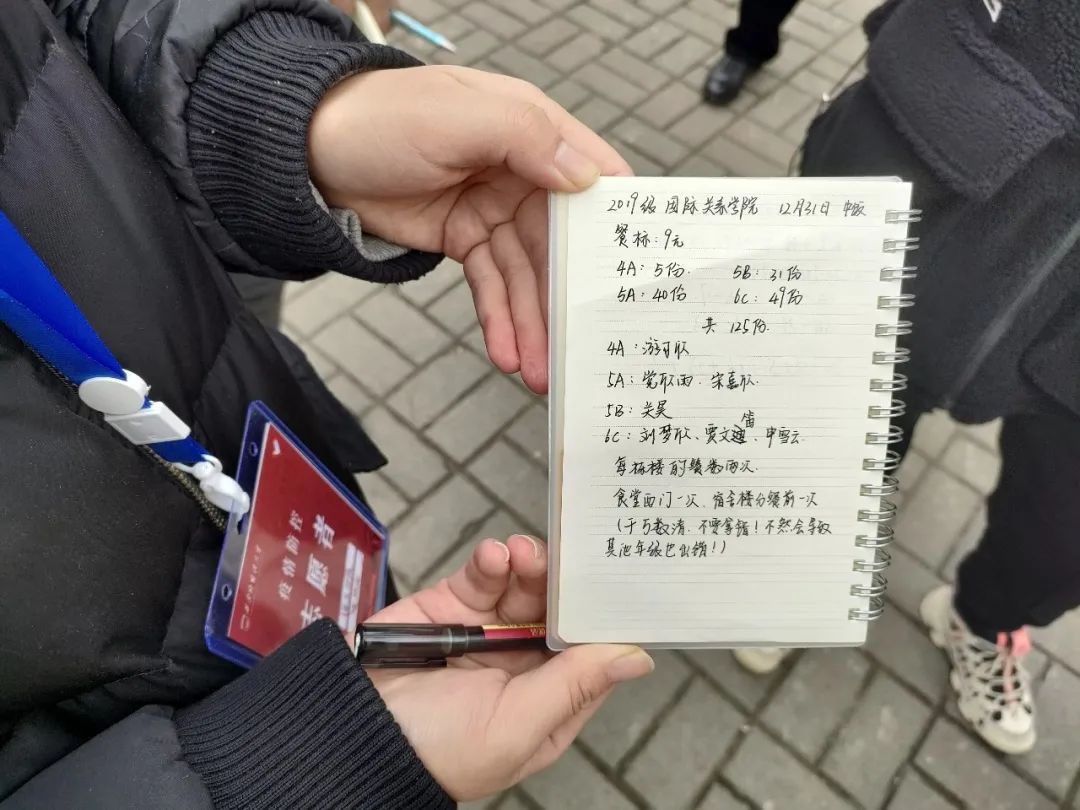 2019级 国际关系学院 12月31日 中饭
餐标：9元
4A：5份. 5B：31份
5A：40份 6C：49份
共 125份.
4A：游可欣
5A：党欣雨、宋嘉欣.
5B：关昊
笛
6C：刘梦欣、贾文、申雪云.
每栋楼的餐数两次.
食堂西门一次、宿舍楼分餐前一次
（千万数清、不要拿错！不然会导致
其他年级也出错！）
疫情防控
志愿者